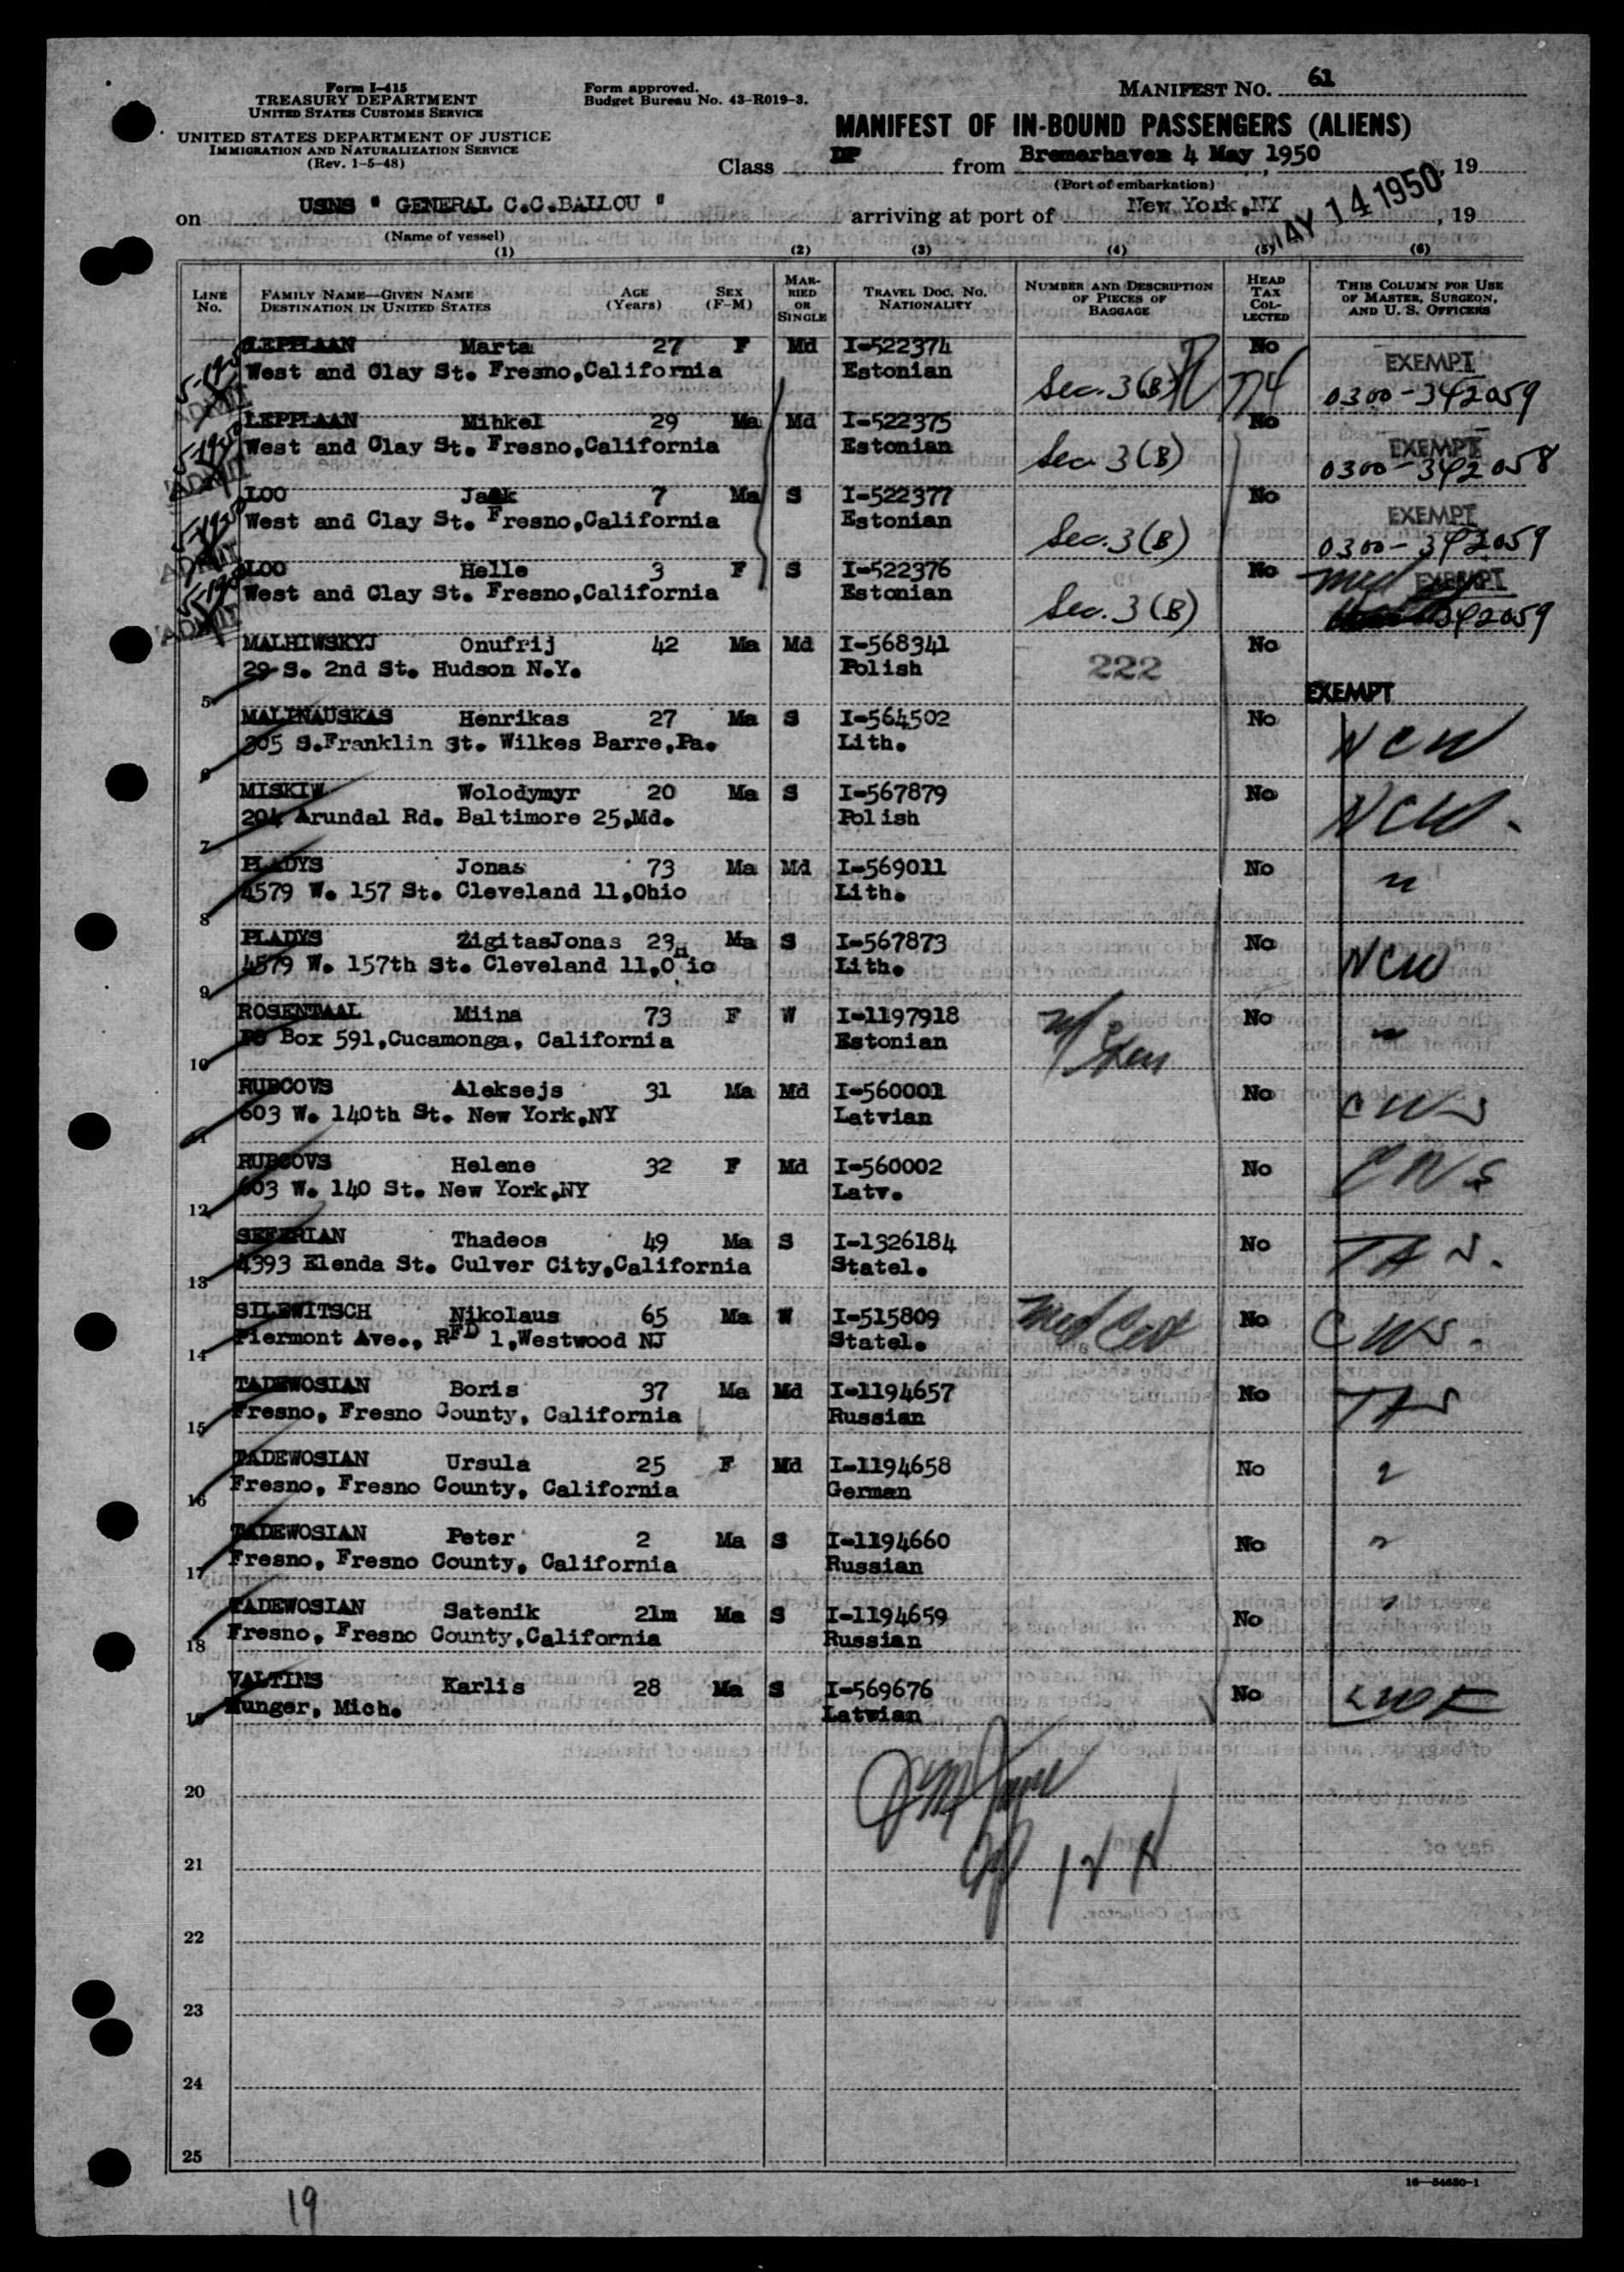 Form I-415
TREASURY DEPARTMENT
UNITED STATES CUSTOMS SERVICE
UNITED STATES DEPARTMENT OF JUSTICE
IMMIGRATION AND NATURALIZATION SERVICE
(Rev. 1-5-48)
Form approved.
Budget Bureau No. 43-R019-3.
MANIFEST NO. 61
MANIFEST OF IN-BOUND PASSENGERS (ALIENS)
Class DP from Bremerhaven 4 May 1950, 19
(Port of embarkation)
on USNS " GENERAL C.C.BALLOU " arriving at port of New York,NY MAY 14 1950, 19
(Name of vessel)
(1) (2) (3) (4) (5) (6)
LINE No. FAMILY NAME—GIVEN NAME DESTINATION IN UNITED STATES AGE (Years) SEX (F-M) MARRIED OR SINGLE TRAVEL DOC. NO. NATIONALITY NUMBER AND DESCRIPTION OF PIECES OF BAGGAGE HEAD TAX COLLECTED THIS COLUMN FOR USE OF MASTER, SURGEON, AND U. S. OFFICERS
LEPPLAAN Marta 27 F Md I-522374 No EXEMPT
West and Clay St. Fresno,California Estonian Sec. 3(B) 0300-342059
ADMIT
LEPPLAAN Mihkel 29 Ma Md I-522375 No EXEMPT
West and Clay St. Fresno,California Estonian Sec 3(B) 0300-342058
ADMIT
LOO Jaak 7 Ma S I-522377 No EXEMPT
West and Clay St. Fresno,California Estonian Sec. 3(B) 0300-342059
ADMIT
LOO Helle 3 F S I-522376 No med EXEMPT
West and Clay St. Fresno,California Estonian Sec. 3(B) 342059
ADMIT
MALHIWSKYJ Onufrij 42 Ma Md I-568341 No
5 29 S. 2nd St. Hudson N.Y. Polish 222 EXEMPT
MALINAUSKAS Henrikas 27 Ma S I-564502 No NCW
6 305 S.Franklin St. Wilkes Barre,Pa. Lith.
MISKIW Wolodymyr 20 Ma S I-567879 No NCW.
7 204 Arundal Rd. Baltimore 25,Md. Polish
PLADYS Jonas 73 Ma Md I-569011 No "
8 4579 W. 157 St. Cleveland 11,Ohio Lith.
PLADYS ZigitasJonas 23 Ma S I-567873 No NCW
9 4579 W. 157th St. Cleveland 11,OHio Lith.
ROSENTAAL Miina 73 F W I-1197918 No "
10 PO Box 591,Cucamonga, California Estonian
RUBCOVS Aleksejs 31 Ma Md I-560001 No CWS
11 603 W. 140th St. New York,NY Latvian
RUBCOVS Helene 32 F Md I-560002 No CWS
12 603 W. 140 St. New York,NY Latv.
SEFERIAN Thadeos 49 Ma S I-1326184 No
13 4393 Elenda St. Culver City,California Statel.
SILEWITSCH Nikolaus 65 Ma W I-515809 No CWS.
14 Piermont Ave., RFD 1,Westwood NJ Statel.
TADEWOSIAN Boris 37 Ma Md I-1194657 No
15 Fresno, Fresno County, California Russian
TADEWOSIAN Ursula 25 F Md I-1194658 No
16 Fresno, Fresno County, California German
TADEWOSIAN Peter 2 Ma S I-1194660 No
17 Fresno, Fresno County, California Russian
TADEWOSIAN Satenik 21m Ma S I-1194659 No
18 Fresno, Fresno County,California Russian
VALTINS Karlis 28 Ma S I-569676 No
19 Munger, Mich. Latvian
20
21
22
23
24
25
16—54650-1
19